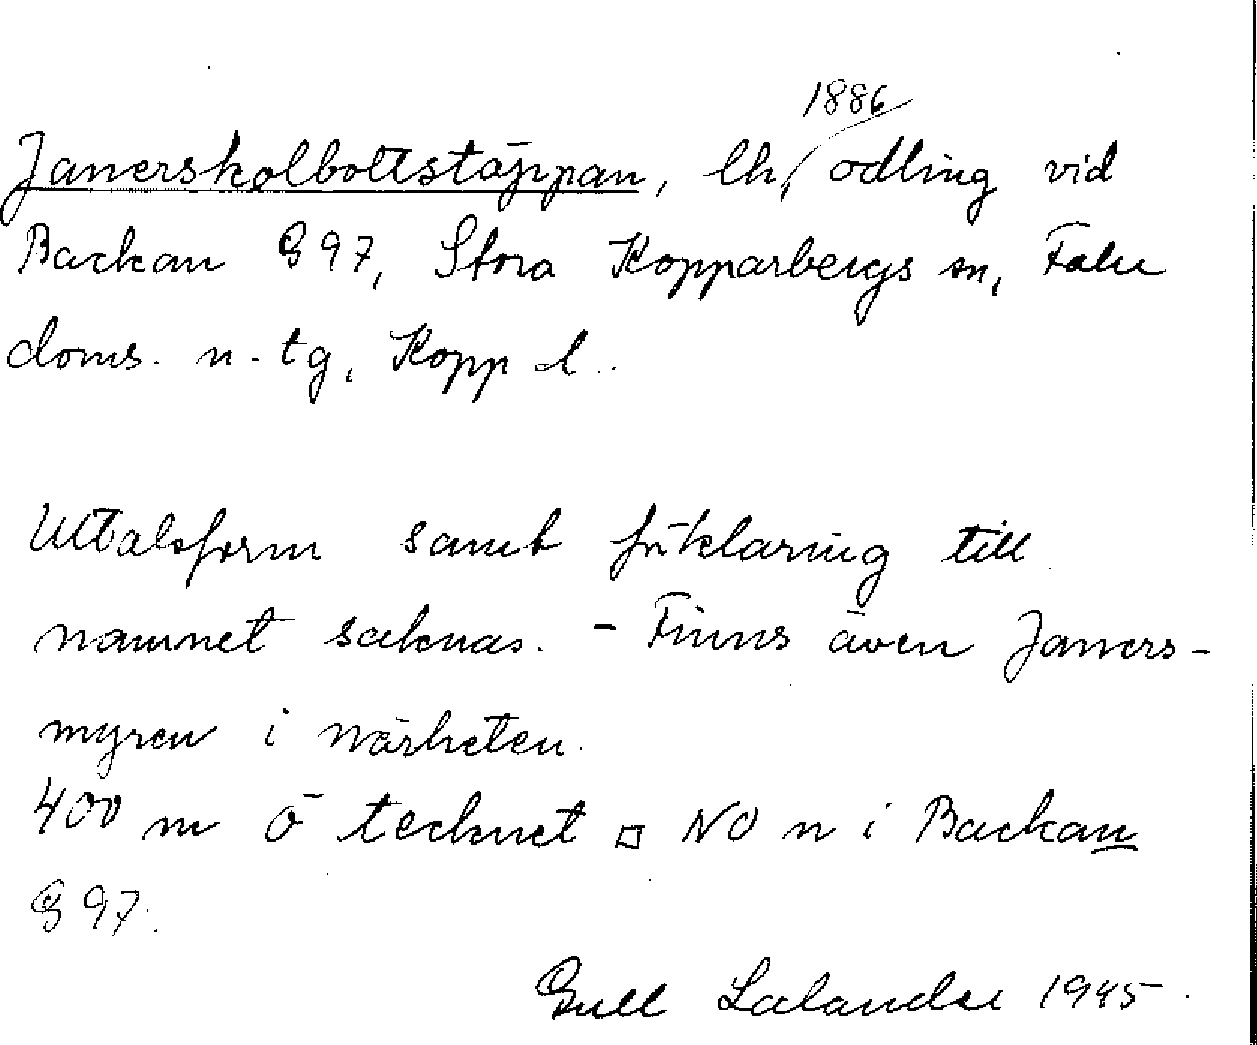 1886
Janerskolbottstäppan, lh, odling vid
Backan G 97, Stora Kopparbergs sn, Falu
doms. n. tg, Kopp l.
Uttalsform samt förklaring till
namnet saknas. - Finns även Janers-
myren i närheten.
400 m Ö tecknet □ NO n i Backan
G 97.
Gull 1945.